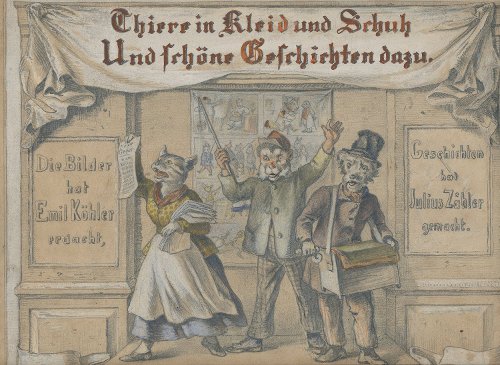 Thiere in Kleid und Schuh
Und schöne Geschichten dazu.
Die Bilder
hat
Emil Köhler
erdacht,
Geschichten
hat
Julius Zähler
gemacht.